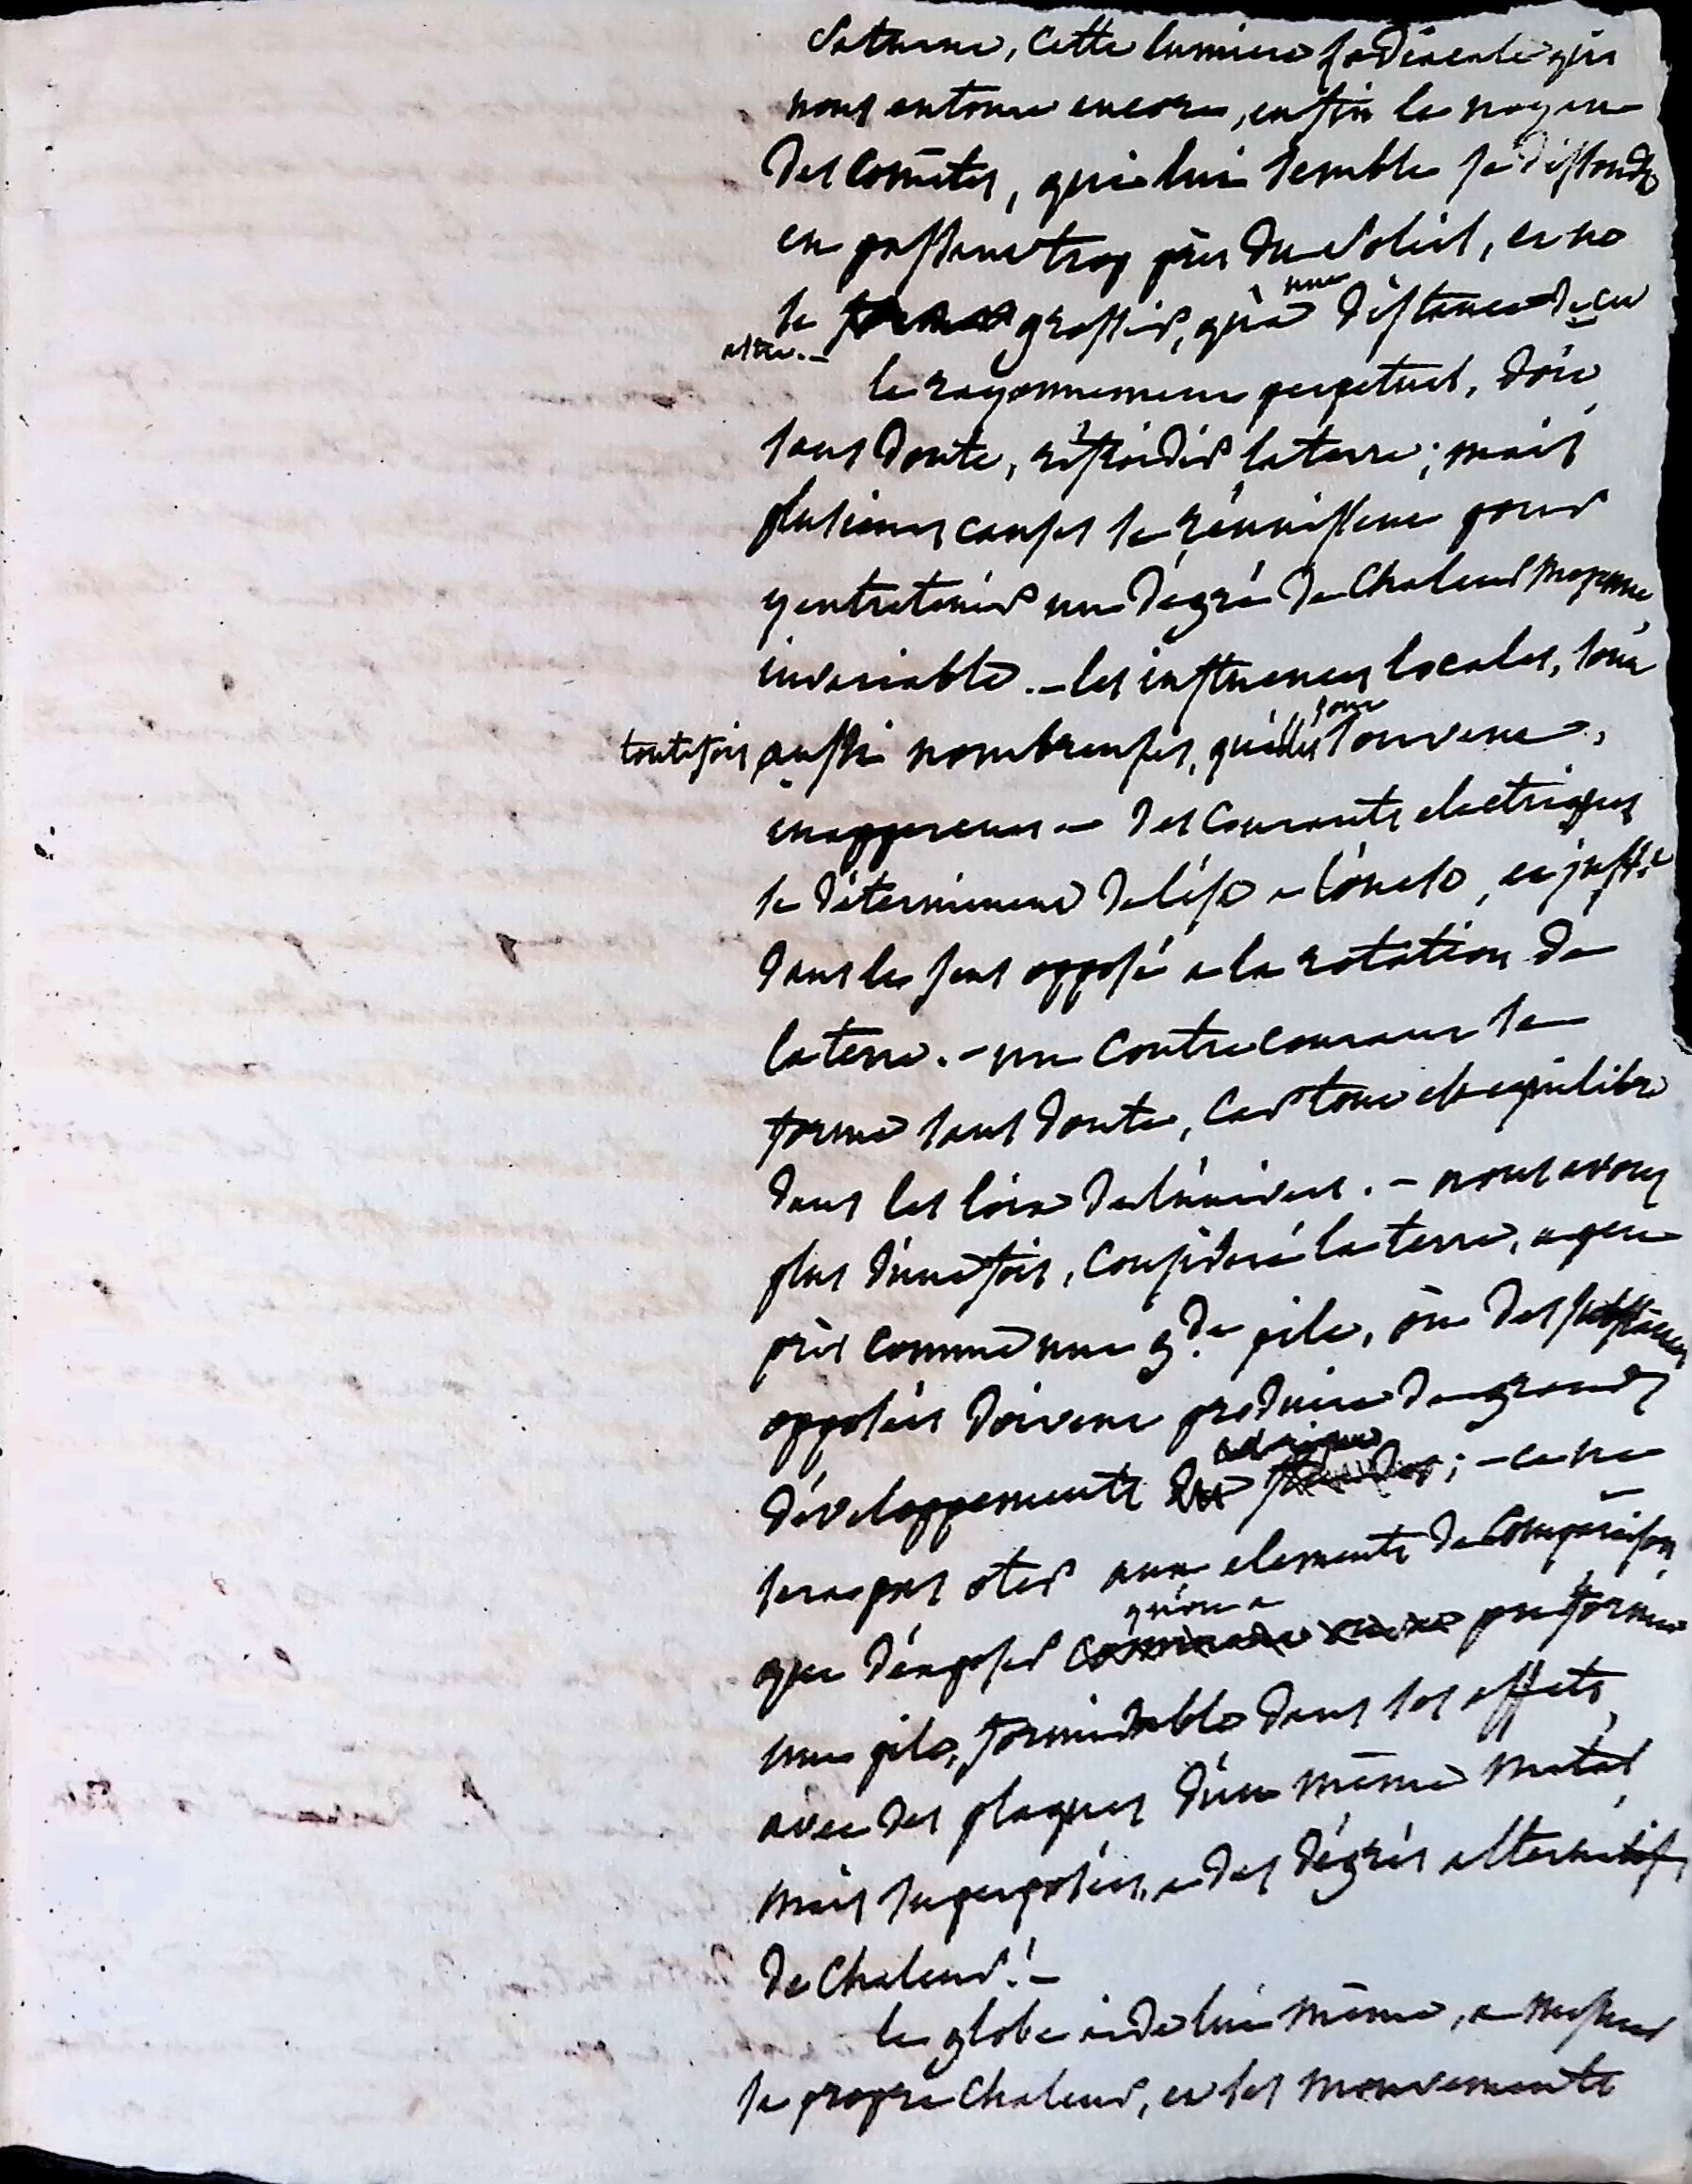 Saturne, cette lumiere Zodiacale qui
nous entoure encore, enfin le noyau
des Cométes, qui lui semble se dissoudre
en passant trop près du Soleil, et ne
se grossir, qu'à une distance de cet
astre. –
le rayonnement perpetuel, doit
sans doute, réfroidir la terre; mais
plusieurs causes se réunissent pour
y entretenir un dégré de Chaleur moyenne
invariable. – les influences locales, sont
toutefois aussi nombreuses, qu'elles sont souvent,
inapperçues – des Courants electriques
se déterminent de l'ést a l'ouest, et justt.
dans le sens opposé a la rotation de
la terre. – un Contre courant se
forme sans doute, Car tout est equilibre
dans les loix de l'univers. – nous avons
plus d'une fois, Considéré la terre, a peu
près comme une gde. pile, où des substances
opposées doivent produire de grands
développements ; – ce ne
sera pas oter aux elements de Comparaison,
que d'exposer qu'on a pu former
une pile, formidable dans ses effets,
avec des plaques d'un même métal,
mais superposées, a des dégrés alternatifs
de Chaleur! –
le globe a de lui même, a mesure
sa propre Chaleur, et ses mouvements